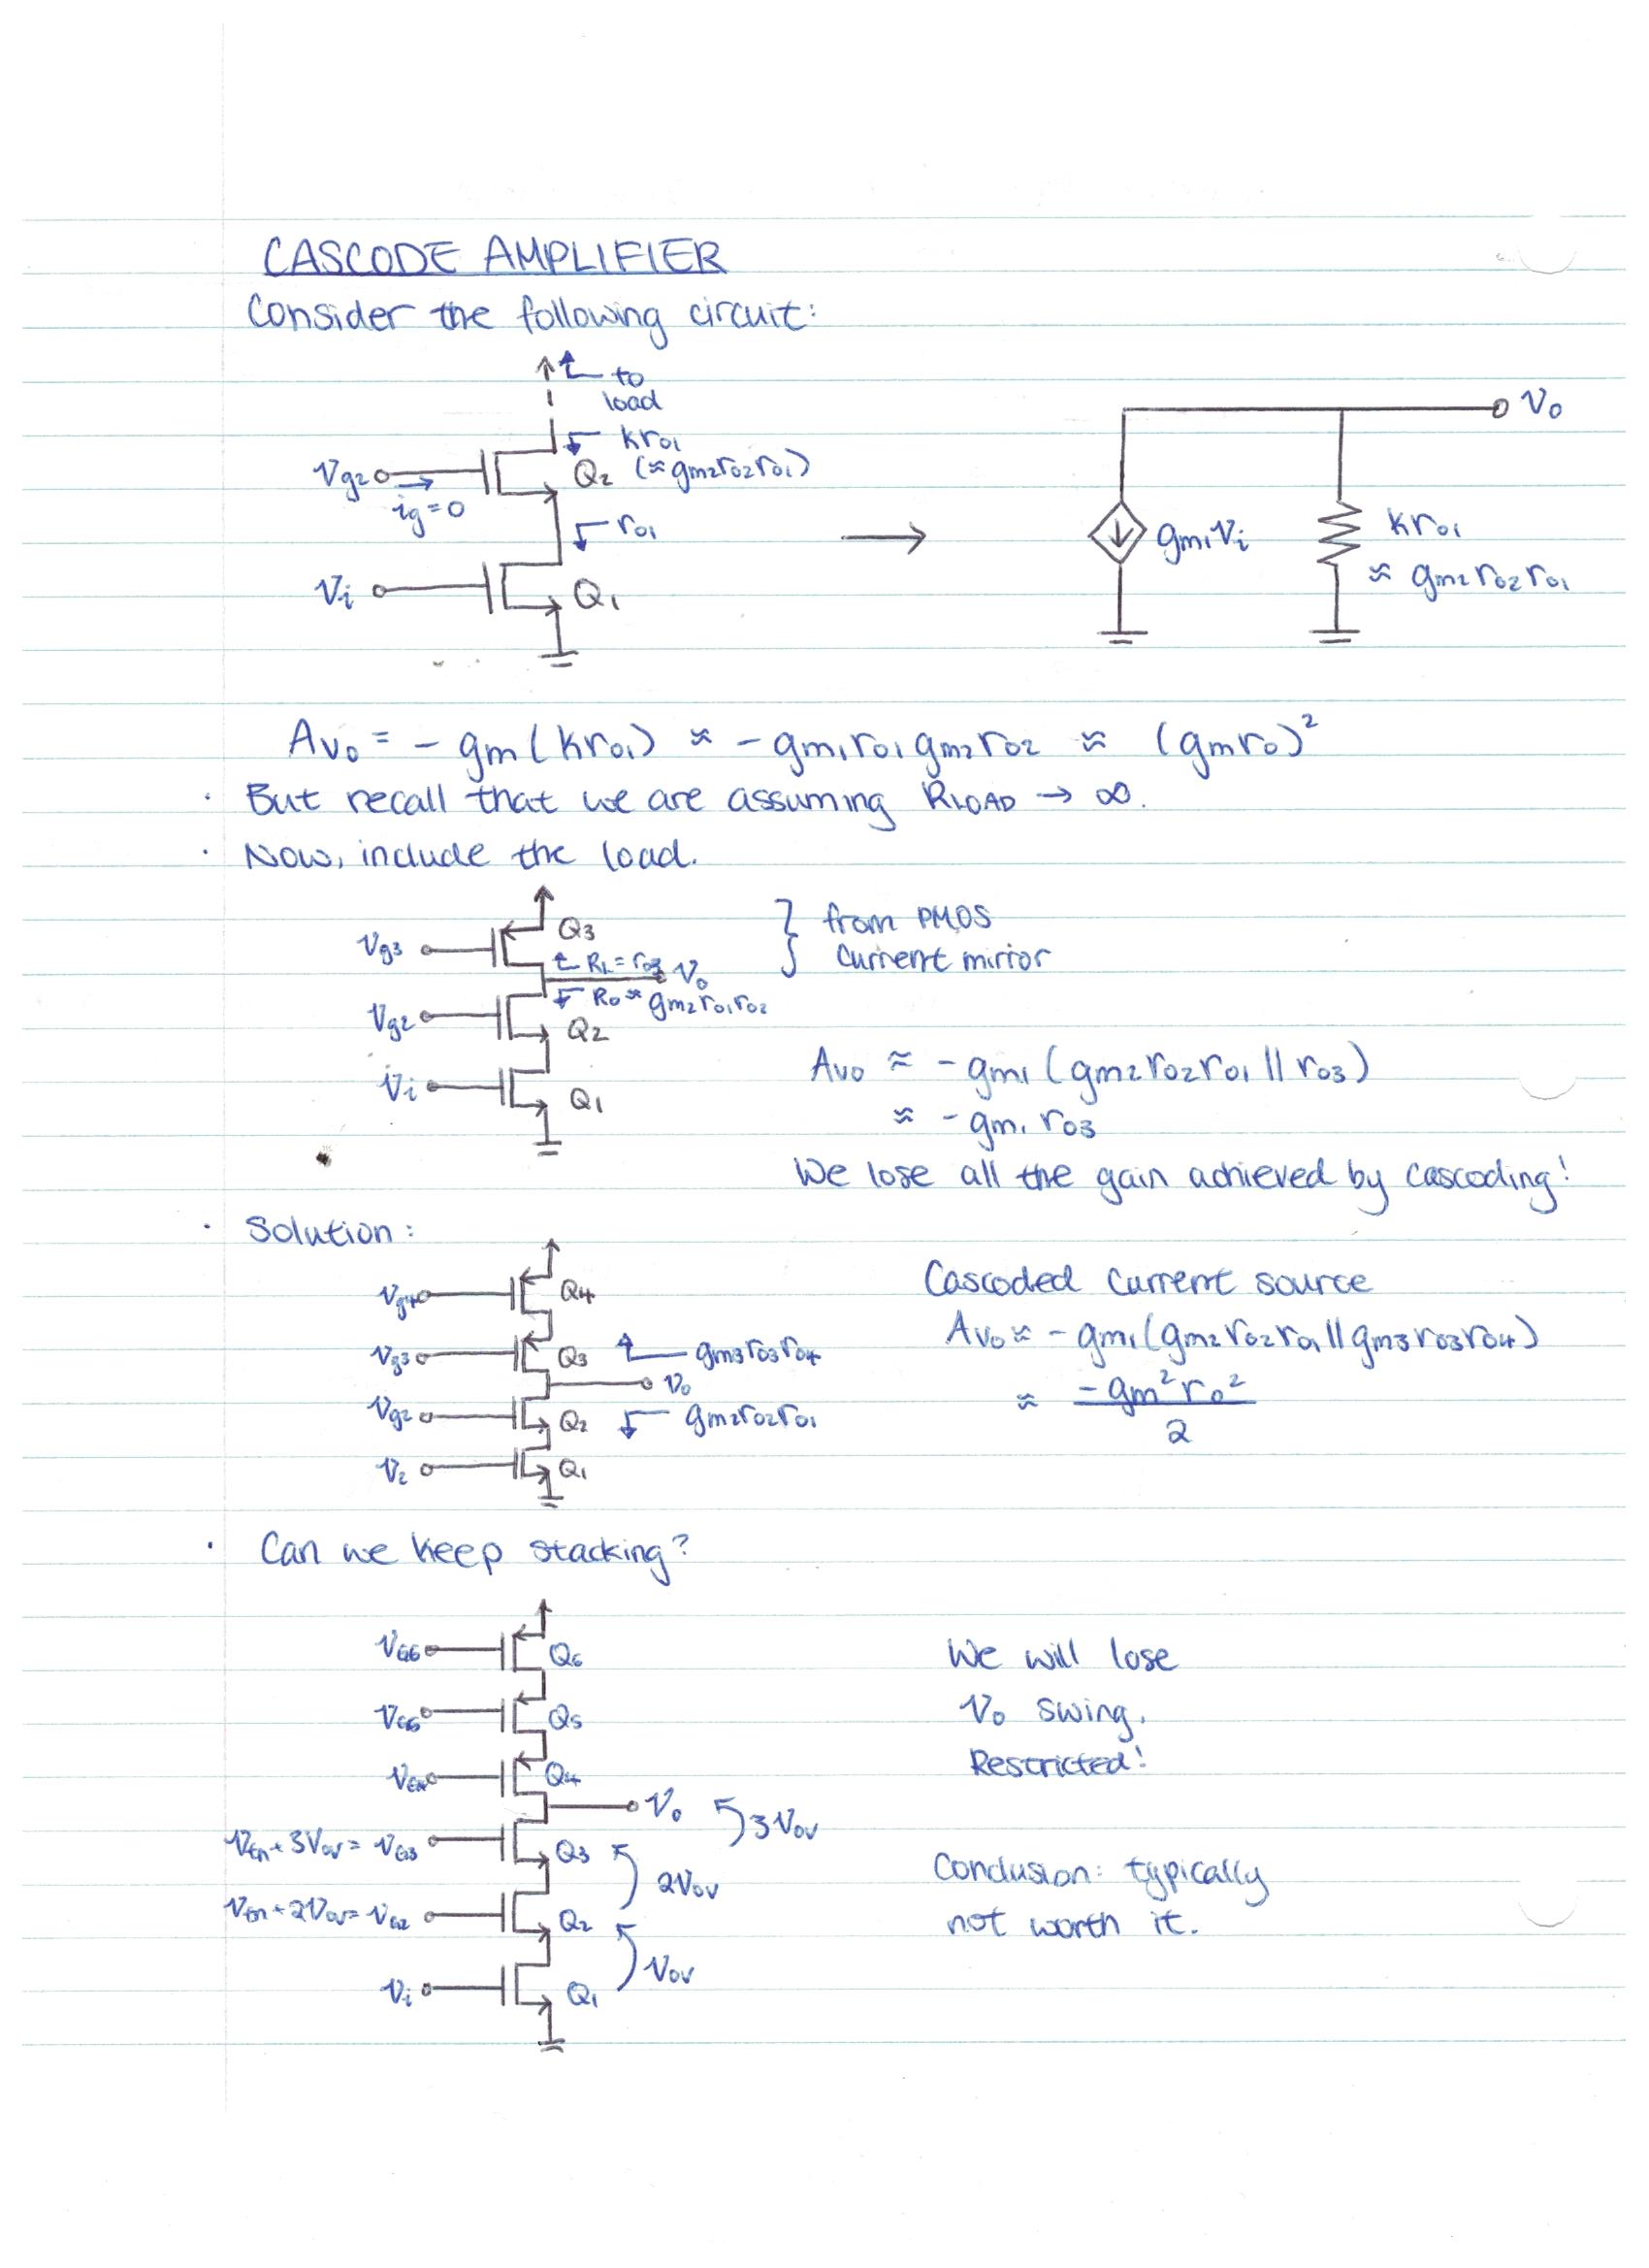 CASCODE AMPLIFIER
Consider the following circuit:
to
load
kro1
Vg2
Q2 (≈gm2ro2ro1)
ig=0
ro1
Vi
Q1
Vo
gm1Vi
kro1
≈ gm2ro2ro1
Avo = - gm(kro1) ≈ - gm1ro1gm2ro2 ≈ (gmro)²
· But recall that we are assuming RLOAD → ∞.
· Now, include the load.
Vg3
Q3
} from PMOS
current mirror
RL = ro3
Vo
Ro ≈ gm2ro1ro2
Vg2
Q2
Vi
Q1
Avo ≈ - gm1 (gm2ro2ro1 || ro3)
≈ - gm1 ro3
We lose all the gain achieved by cascoding!
· Solution:
Vg4
Q4
Vg3
Q3
gm3ro3ro4
Vo
Vg2
Q2
gm2ro2ro1
Vi
Q1
Cascoded current source
Avo ≈ - gm1(gm2ro2ro1||gm3ro3ro4)
≈ -gm²ro²
2
· Can we keep stacking?
VG6
Q6
VG5
Q5
VG4
Q4
Vo
3Vov
Vtn+3Vov = VG3
Q3
2Vov
Vtn+2Vov = VG2
Q2
Vov
Vi
Q1
We will lose
Vo swing.
Restricted!
Conclusion: typically
not worth it.